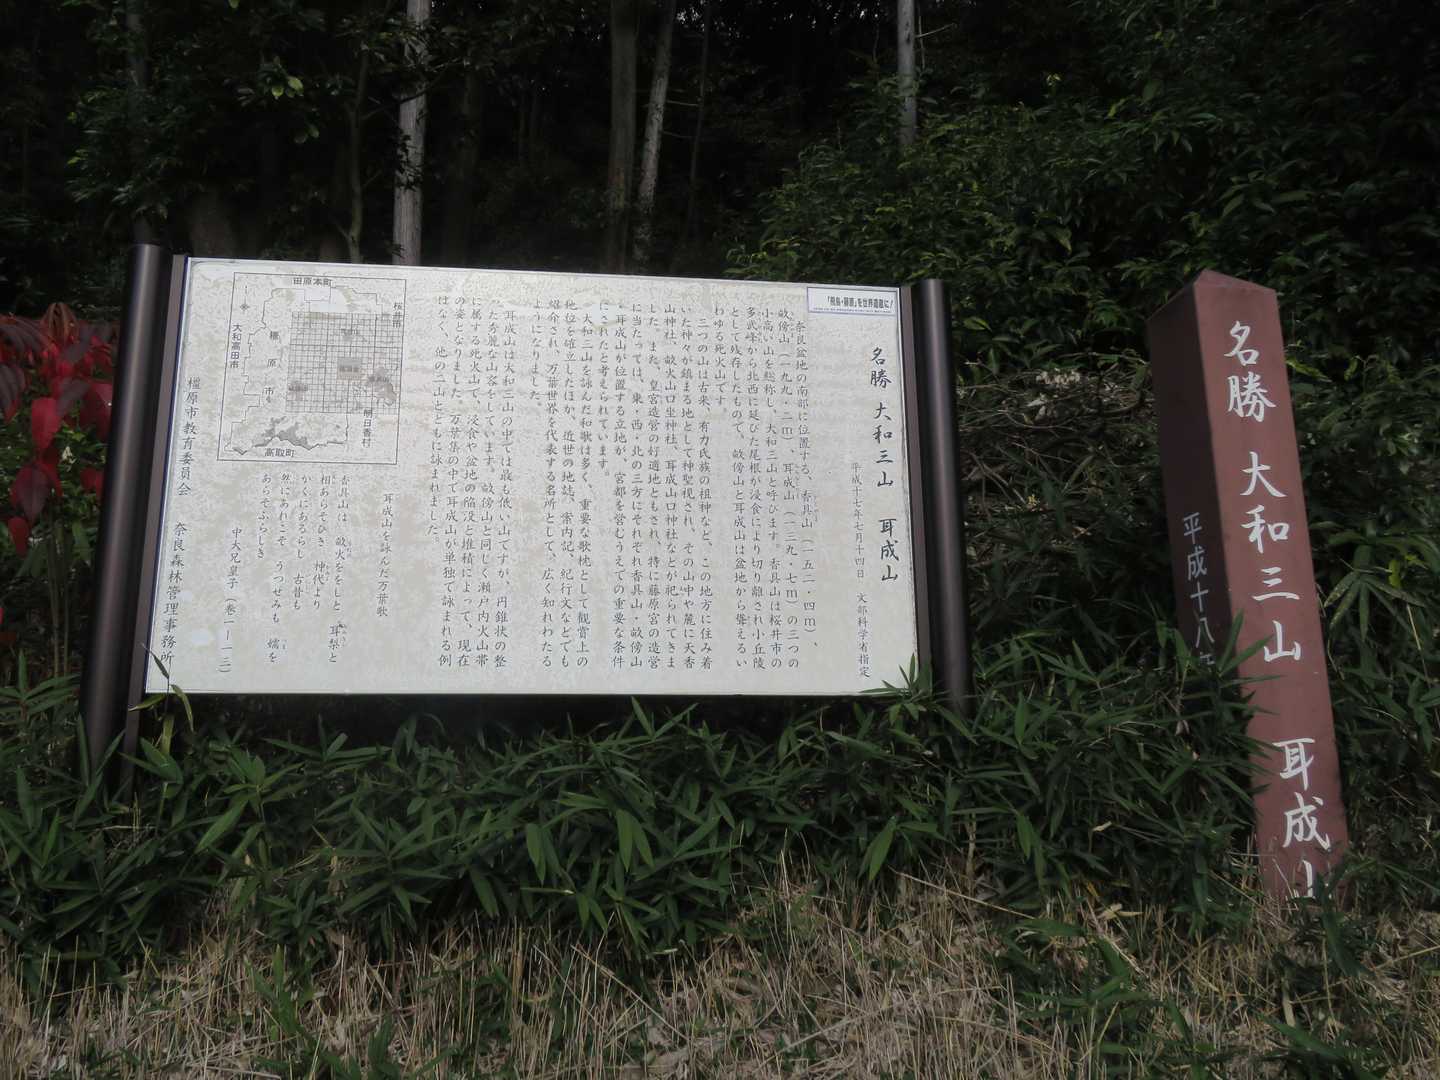 「飛鳥・藤原」を世界遺産に！
名勝 大和三山 耳成山
平成十七年七月十四日 文部科学省指定
奈良盆地の南部に位置する、香具山（一五二・四ｍ）、
畝傍山（一九九・二ｍ）、耳成山（一三九・七ｍ）の三つの
小高い山を総称し、大和三山と呼びます。香具山は桜井市の
多武峰から北西に延びた尾根が浸食により切り離され小丘陵
として残存したもので、畝傍山と耳成山は盆地から聳えるい
わゆる死火山です。
三つの山は古来、有力氏族の祖神など、この地方に住み着
いた神々が鎮まる地として神聖視され、その山中や麓に天香
山神社、畝火山口坐神社、耳成山口神社などが祀られてきま
した。また、皇宮造営の好適地ともされ、特に藤原宮の造営
に当たっては、東・西・北の三方にそれぞれ香具山・畝傍山
・耳成山が位置する立地が、宮都を営むうえでの重要な条件
にされたと考えられています。
大和三山を詠んだ和歌は多く、重要な歌枕として観賞上の
地位を確立したほか、近世の地誌、案内記、紀行文などでも
紹介され、万葉世界を代表する名所として、広く知れわたる
ようになりました。
耳成山は大和三山の中では最も低い山ですが、円錐状の整
った秀麗な山容をしています。畝傍山と同じく瀬戸内火山帯
に属する死火山で、浸食や盆地の陥没と堆積によって、現在
の姿となりました。万葉集の中で耳成山が単独で詠まれる例
はなく、他の二山とともに詠まれました。
耳成山を詠んだ万葉歌
香具山は 畝火ををしと 耳梨と
相あらそひき 神代より
かくにあるらし 古昔も
然にあれこそ うつせみも 嬬を
あらそふらしき
中大兄皇子（巻一―一三）
田原本町
桜井市
橿原市
大和高田市
明日香村
高取町
橿原市教育委員会
奈良森林管理事務所
名勝 大和三山 耳成山
平成十八年